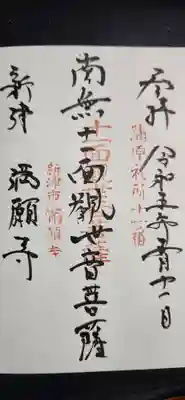 令和五年 月十一日
蒲原札所十一番
南無十一面觀世音菩薩
新津 満願寺
新津市 満願寺